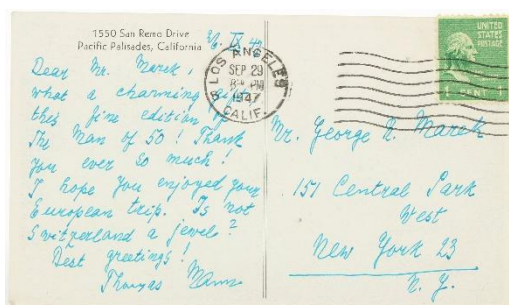 1550 San Remo Drive
Pacific Palisades, California
Dear Mr. Marek,
what a charming
this fine edition of
The Man of 50! Thank
you ever so much!
I hope you enjoyed your
European trip. Is not
Switzerland a jewel?
Best greetings!
Thomas Mann
LOS ANGELES
SEP 29
PM
1947
CALIF.
UNITED
STATES
POSTAGE
1 CENT 1
Mr. George R. Marek
151 Central Park
West
New York 23
N. Y.